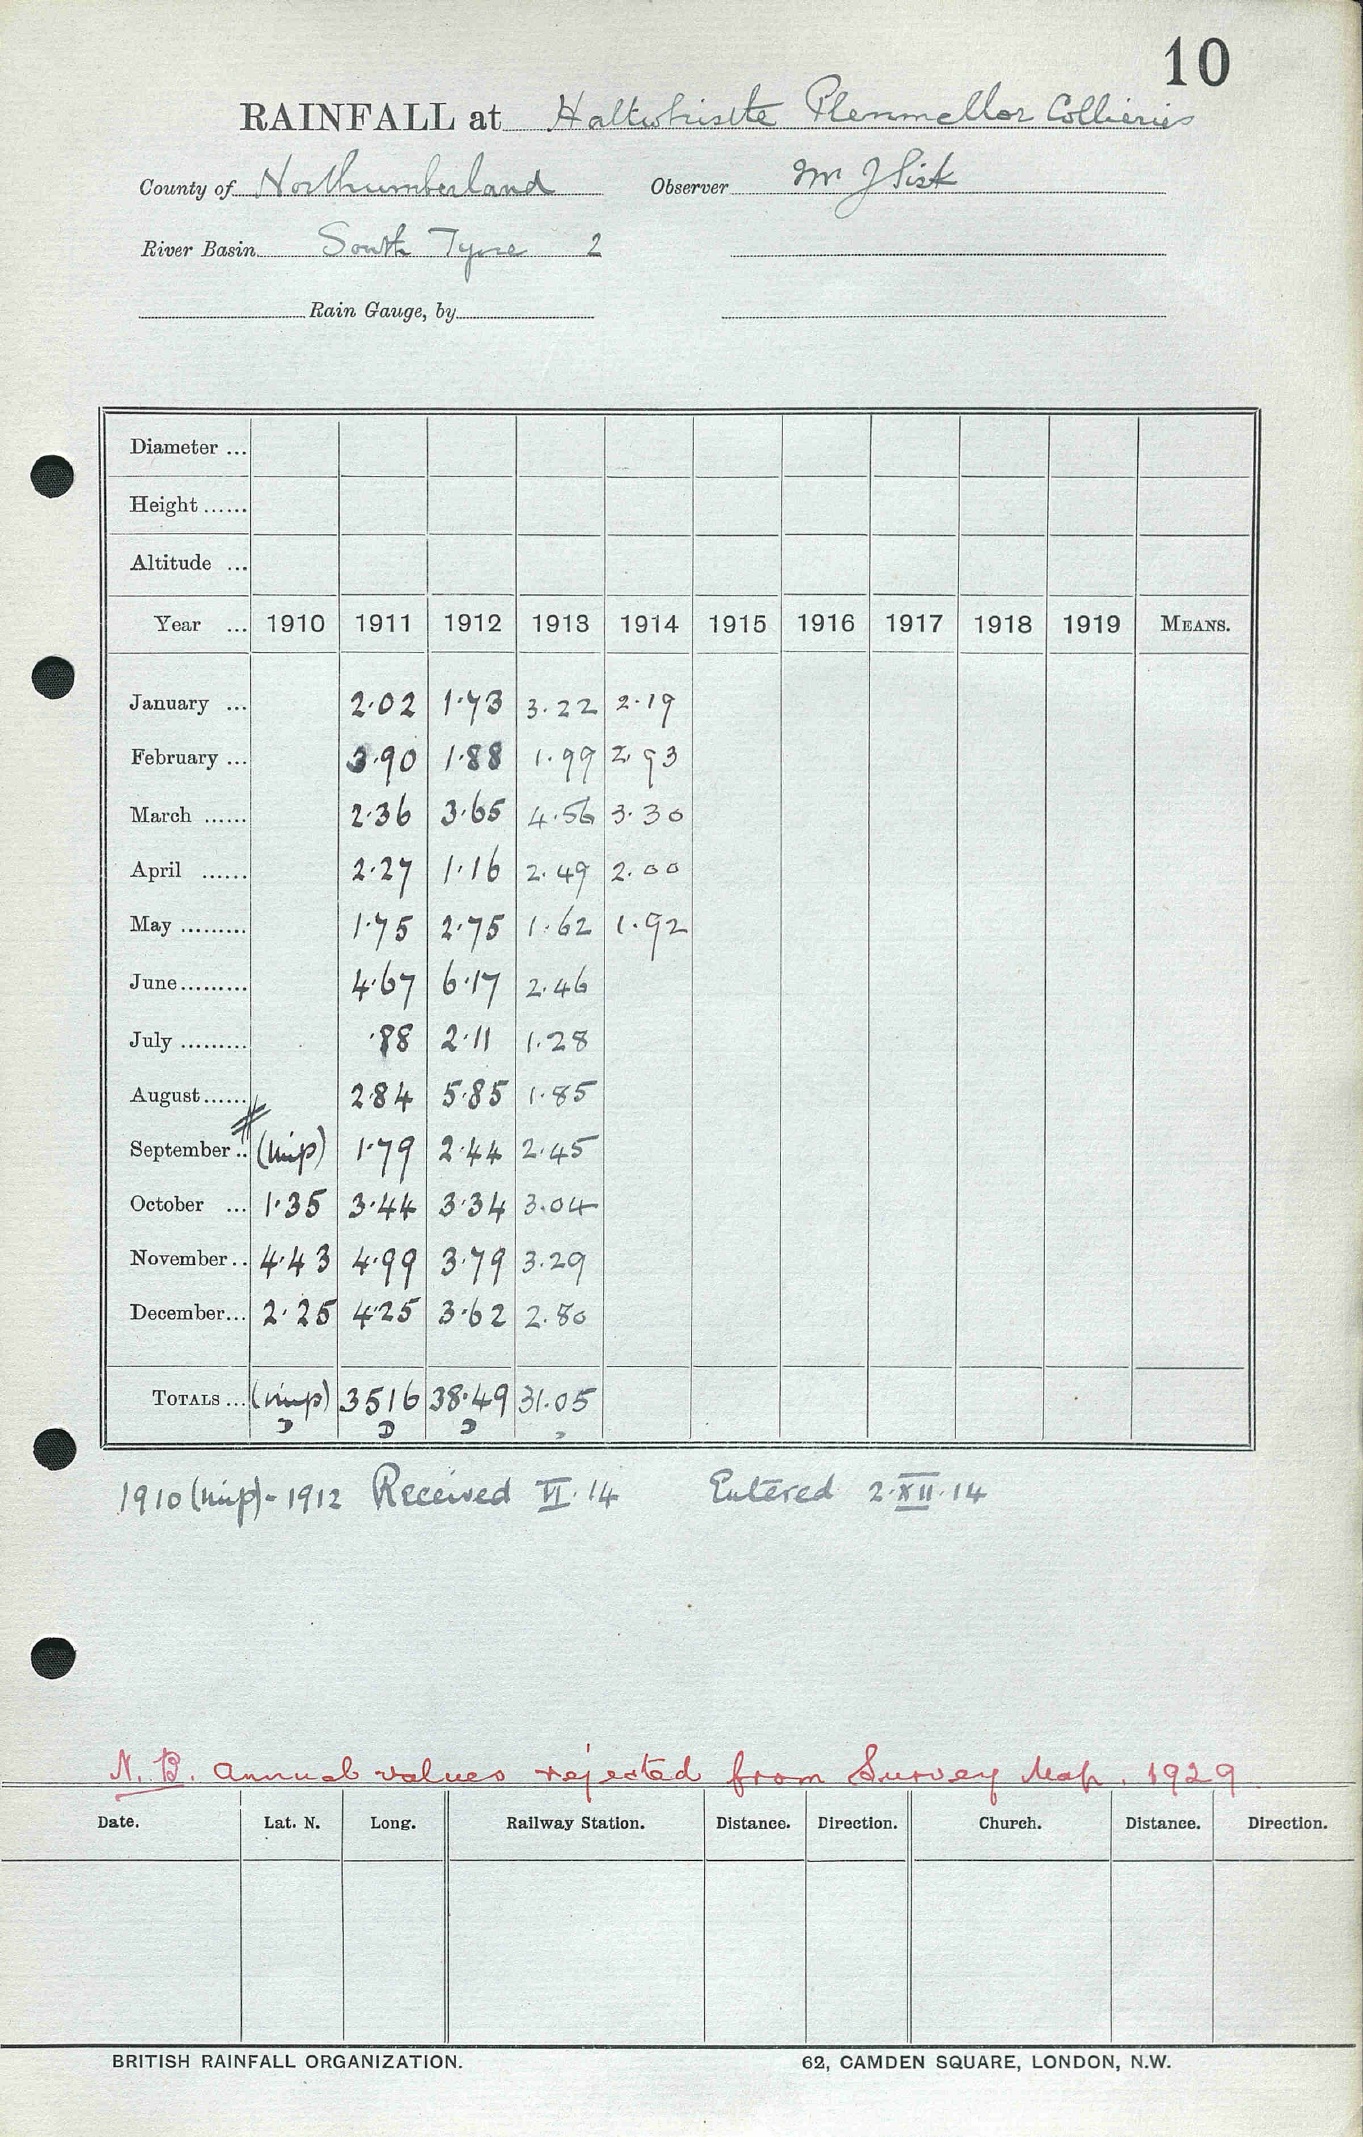 10
RAINFALL at Haltwhistle Plenmellor Collieries
County of Northumberland Observer Mr J Sisk
River Basin South Tyne 2
Rain Gauge, by
Diameter ...
Height ......
Altitude ...
Year ... 1910 1911 1912 1913 1914 1915 1916 1917 1918 1919 MEANS.
January ... 2.02 1.73 3.22 2.19
February ... 3.90 1.88 1.99 2.93
March ...... 2.36 3.65 4.56 3.30
April ...... 2.27 1.16 2.49 2.00
May ......... 1.75 2.75 1.62 1.92
June......... 4.67 6.17 2.46
July ......... .88 2.11 1.28
August...... 2.84 5.85 1.85
September .. (imp) 1.79 2.44 2.45
October ... 1.35 3.44 3.34 3.04
November .. 4.43 4.99 3.79 3.29
December... 2.25 4.25 3.62 2.80
TOTALS ... (imp) 35 16 38.49 31.05
D D D
1910 (imp) - 1912 Received VI. 14 Entered 2.XII.14
N.B. Annual values rejected from Survey Map. 1929
Date. Lat. N. Long. Railway Station. Distance. Direction. Church. Distance. Direction.
BRITISH RAINFALL ORGANIZATION. 62, CAMDEN SQUARE, LONDON, N.W.